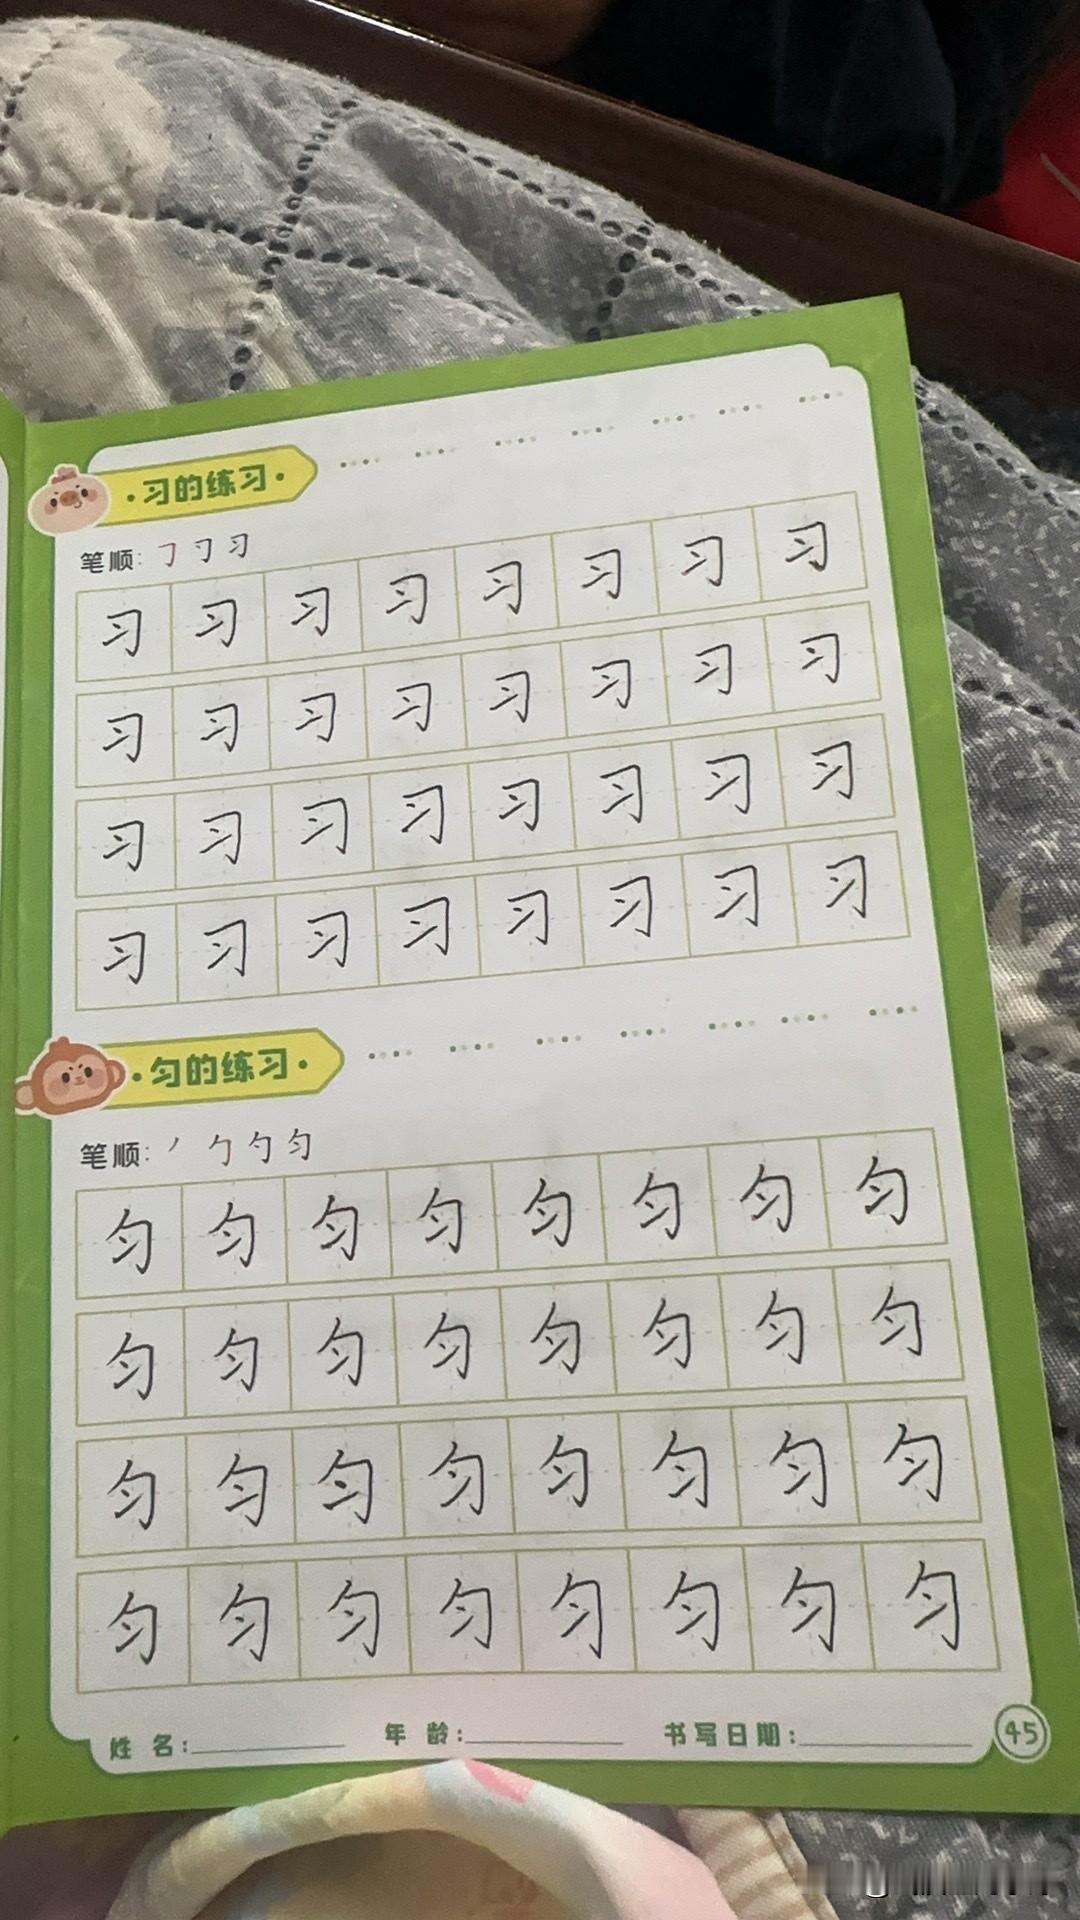 ·习的练习·
笔顺: 𠃌 刁 习
习 习 习 习 习 习 习 习
习 习 习 习 习 习 习 习
习 习 习 习 习 习 习 习
习 习 习 习 习 习 习 习
·匀的练习·
笔顺: 丿 勹 勺 匀
匀 匀 匀 匀 匀 匀 匀 匀
匀 匀 匀 匀 匀 匀 匀 匀
匀 匀 匀 匀 匀 匀 匀 匀
匀 匀 匀 匀 匀 匀 匀 匀
姓名: 年龄: 书写日期: 45